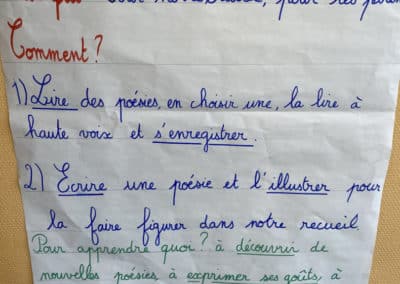 pour nos
Comment ?
1) Lire des poésies, en choisir une, la lire à
haute voix et s'enregistrer.
2) Ecrire une poésie et l'illustrer pour
la faire figurer dans notre recueil.
Pour apprendre quoi ? à découvrir de
nouvelles poésies, à exprimer ses goûts, à